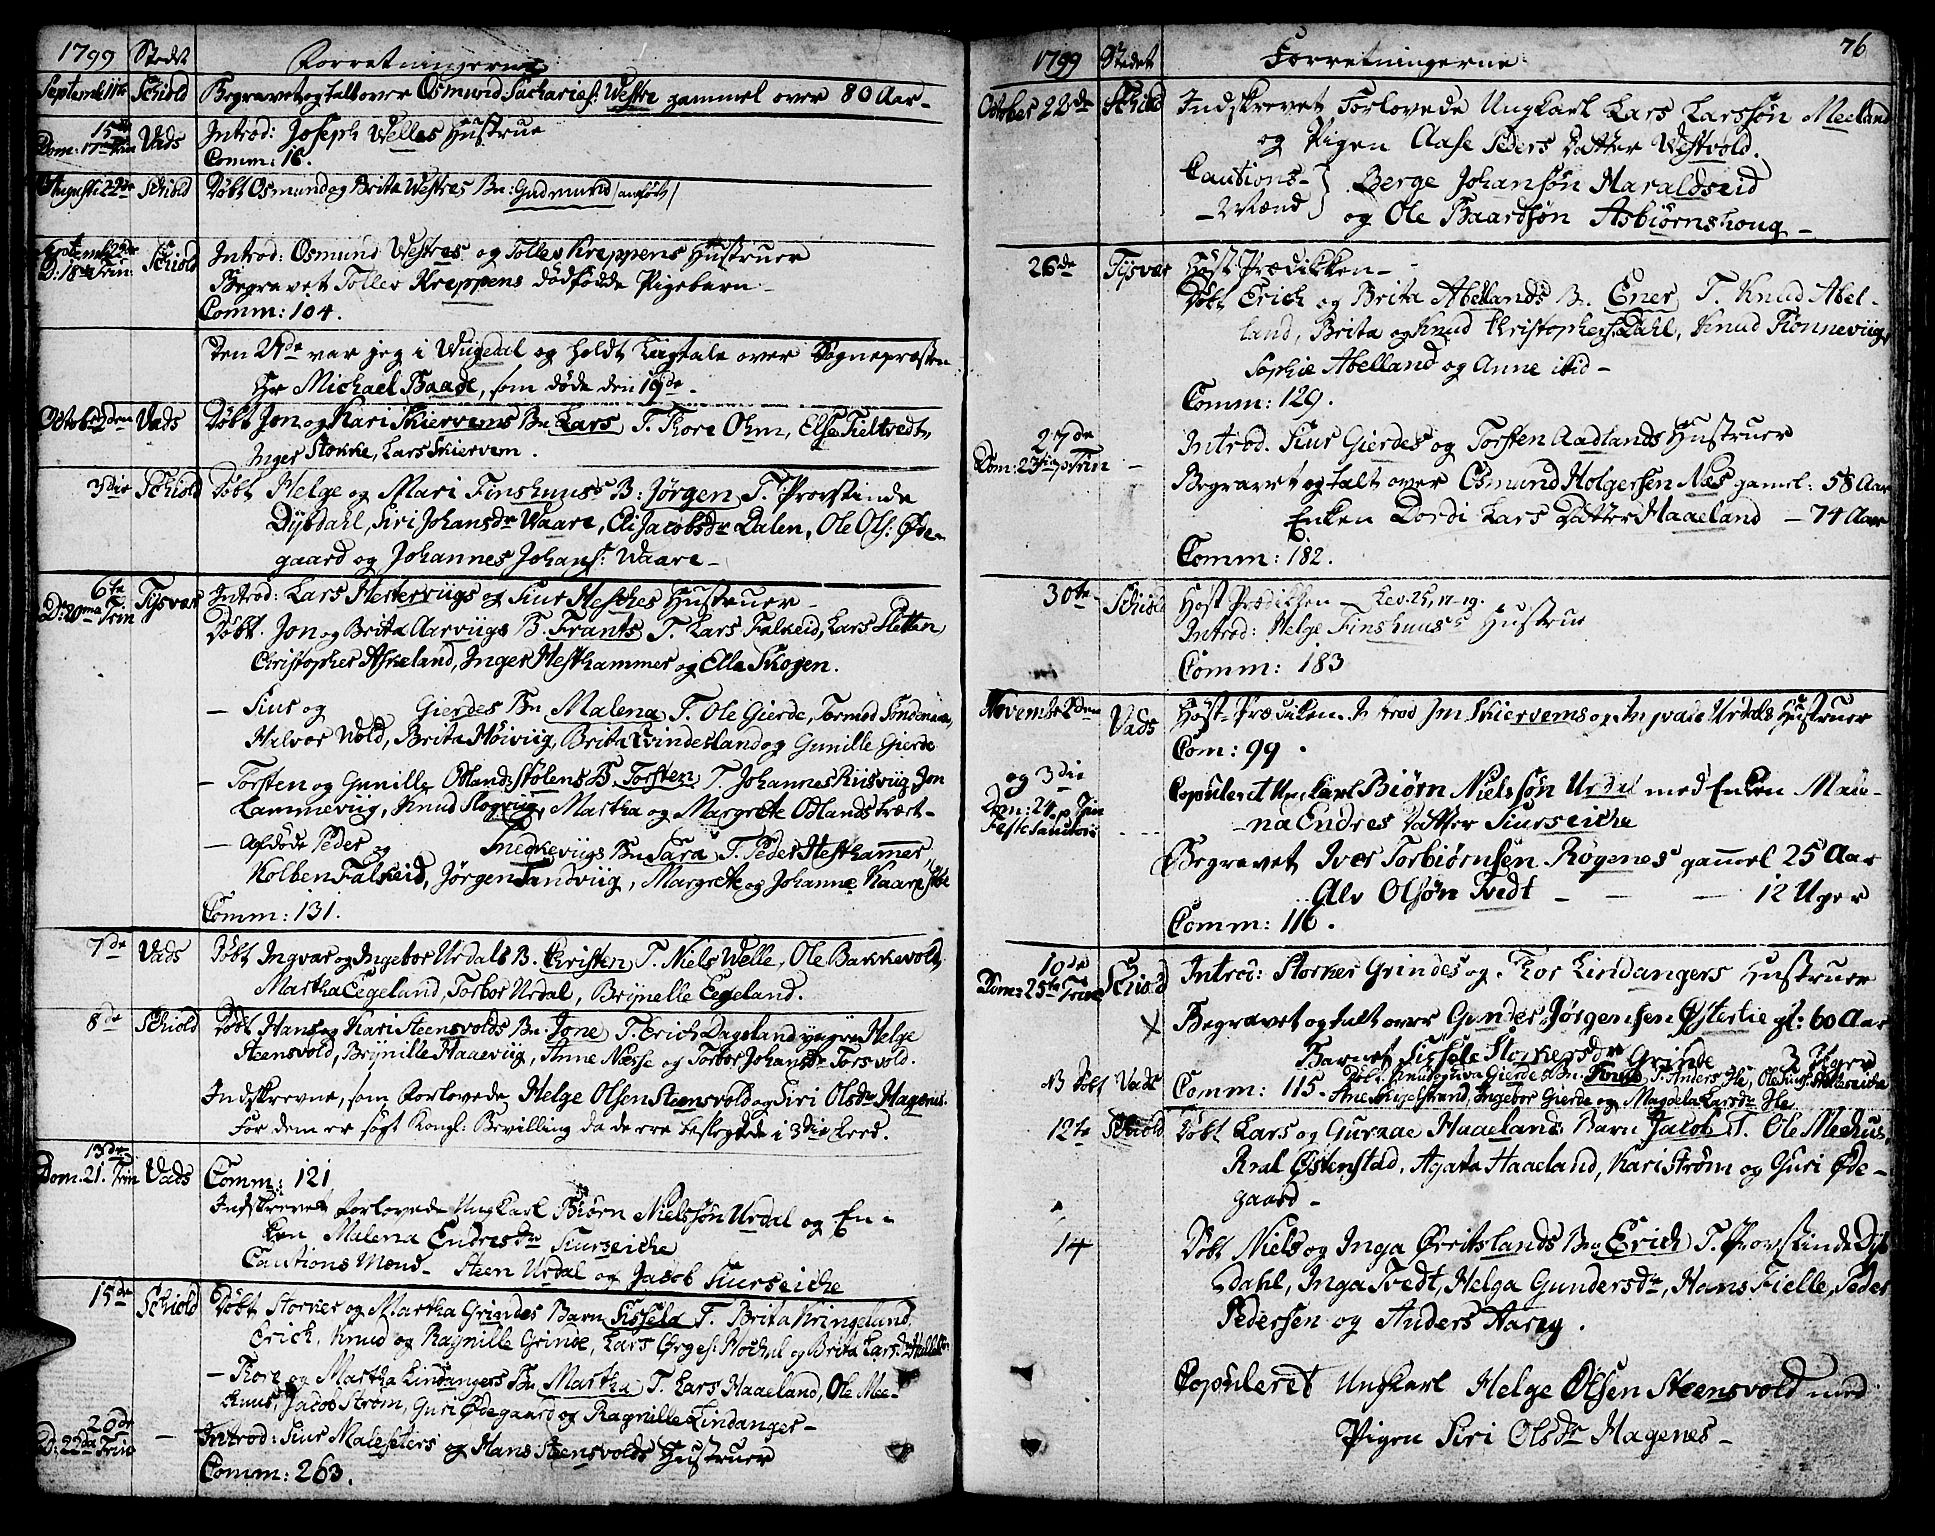 1799 Stedet Forretningerne
Septemb 11te Schiold Begravet og talt over Osmund Sachariæs: Westre gammel over 80 Aar
15de Dom: 17de Trin Vads Introd: Joseph Welles Hustrue
Comm: 16.
Augusti 22de Schiold Døbt Osmund og Brita Westres Bn: Gudmund /anført/
Septemb 22de D: 18de Trin: Schiold Introd: Osmund Westres og Tolles Kreppens Hustruer
Begravet Tolles Kreppens dødfødde Pigebarn
Comm: 104.
Den 24de var jeg i Wigedal og holdt Liigtale over Sognepræsten
Hr Michael Baade, som døde den 19de
Octobr 2den Vads Døbt Jon og Kari Skiervems Bn Lars T. Tore Ohm, Else Tieltvedt,
Inger Stokke, Lars Skiervem.
3die Schiold Døbt Helge og Mari Finshuus's B: Jørgen T. Provstinde
Dybdahl, Siri Johansdr Waare, Eli Jacobsdr Dalen, Ole Ols: Øde-
gaard og Johannes Johans: Waare
6te D: 20ma Trin Tysvær Introd: Lars Hesterviigs og Siur Hesches Hustruer
Døbt. Jon og Brita Aarviigs B. Frants T. Lars Falkeid, Lars Sletten
Christopher Afseland, Inger Hesthammer og Elle Skogen.
— Siur og Gierdes Bn Malena T. Ole Gierde, Tormod Søndenaae,
Halvor Vold, Brita Høiviig, Brita Qvindesland og Gunille Gierde
— Torsten og Gunille Odlands Stølens B Torsten T. Johannes Riisviig, Jon
Lammeviig, Knud Slogviig, Martha og Margrete Odlands Træet
— Afdøde Peder og Snedkeviigs Bn Sara T. Peder Hesthamer,
Kolben Falkeid, Jørgen Sandviig, Margrete og Johanne Kaarestøe
Comm: 131.
7de Vads Døbt Ingvar og Ingebor Urdals B. Kristen T. Niels Welle, Ole Bakkevold
Martha Eegeland, Torbor Urdal, Brynelle Eegeland.
8de Schiold Døbt Hans og Kari Steensvolds Bn: Jone T. Erich Dagsland yngre Helge
Steensvold, Brynille Haaeviig, Anne Næsse og Torbor Johansdr Torsvold.
Indskrevne, som Forlovede Helge Olsen Steensvold og Siri Olsdr Hagenes.
For dem er søgt Kongl: Bevilling da de ere beslegtede i 3die Leed.
13de Dom. 21. Trin Vads Comm: 121
Indskrevet Forlovede Ungkarl Biørn Nielssøn Urdal og En-
ken Malena Endresdr Siurseiche
Cautions Mænd Steen Urdal og Jacob Siurseiche
15de Schiold Døbt Storker og Martha Grindes Barn Sissela T. Brita Kringeland
Erich, Knud og Ragnille Grinde, Lars Ørges: Stochel og Brita Larsdr
— Tore og Martha Lindangers Bn Martha T. Lars Haaeland, Ole Mee-
huus, Jacob Strøm, Guri Ødegaard og Ragnille Lindanger
20de D: 22da Trin — Introd: Siur Maleseters og Hans Steensvolds Hustruer
Comm: 263.
76
1799 Stedet Forretningerne
October 22de Schiold Indskrevet Forlovede Ungkarl Lars Larssøn Meeland
og Pigen Aase Peders Datter Westvold.
Cautions- Mænd } Berge Johansøn Haraldseid
og Ole Baardsøn Asbiørnshoug
26de Tysvær Høst Prædikken
Døbt Erich og Brita Abellands B. Ener, T. Knud Abel-
land, Brita og Knud Christophers: Dahl, Knud Tionneviig,
Sophie Abelland og Anne ibid
Comm: 129.
27de Dom: 23tia p Trin — Introd. Siur Gierdes og Torsten Aadlands Hustruer
Begravet og talt over Osmund Holgersen Næs gamel: 58 Aar
Enken Dordi Lars Datter Haaeland — 74 Aar
Comm: 182.
30te Schiold Høst Prædikken — Lev. 25, 17-19.
Introd: Helge Finshuus's Hustrue
Comm: 183
Novembr 2den Vads Høst-Prædiken. Introd Jon Skiervems og Ingvald Urdals Hustruer
Com: 99.
og 3die Dom: 24. p. Trin Copuleret Ungkarl Biørn Nielssøn Urdal med Enken Male-
na Endres Datter Siurseiche
Begravet Iver Torbiørnsen Røgenes gammel 25 Aar
Alv Olsøn Tvedt — 12 Uger
Comm: 116.
10de Dom: 25te Trin Schiold Introd: Storker Grindes og Tor Lindangers Hustruer
X Begravet og talt over Gunder Jørgensen Østerlie gl: 60 Aar
Barnet Sissele Storkersdr Grinde 3 Uger
13 Døbt Vads Comm: 115. Døbt Knud og Eva Gierdes Bn: T. Anders He,
Ane Engelstrand, Ingebor Gierde og Magdela Larsdr He
12te Schiold Døbt Lars og Guraae Haaelands Barn Jacob T. Ole Meehus,
Roal Østenstad, Agata Haaeland, Kari Strøm og Guri Øde-
gaard
14 Døbt Niels og Inga Øreitslands Bn Erich T. Provstinde Dyb
Dahl, Inga Tvedt, Helga Gundersdr, Hans Fielle, Peder
Pedersen og Anders Aareg.
Copuleret Ungkarl Helge Olsen Steensvold med
Pigen Siri Olsdr Hagenes